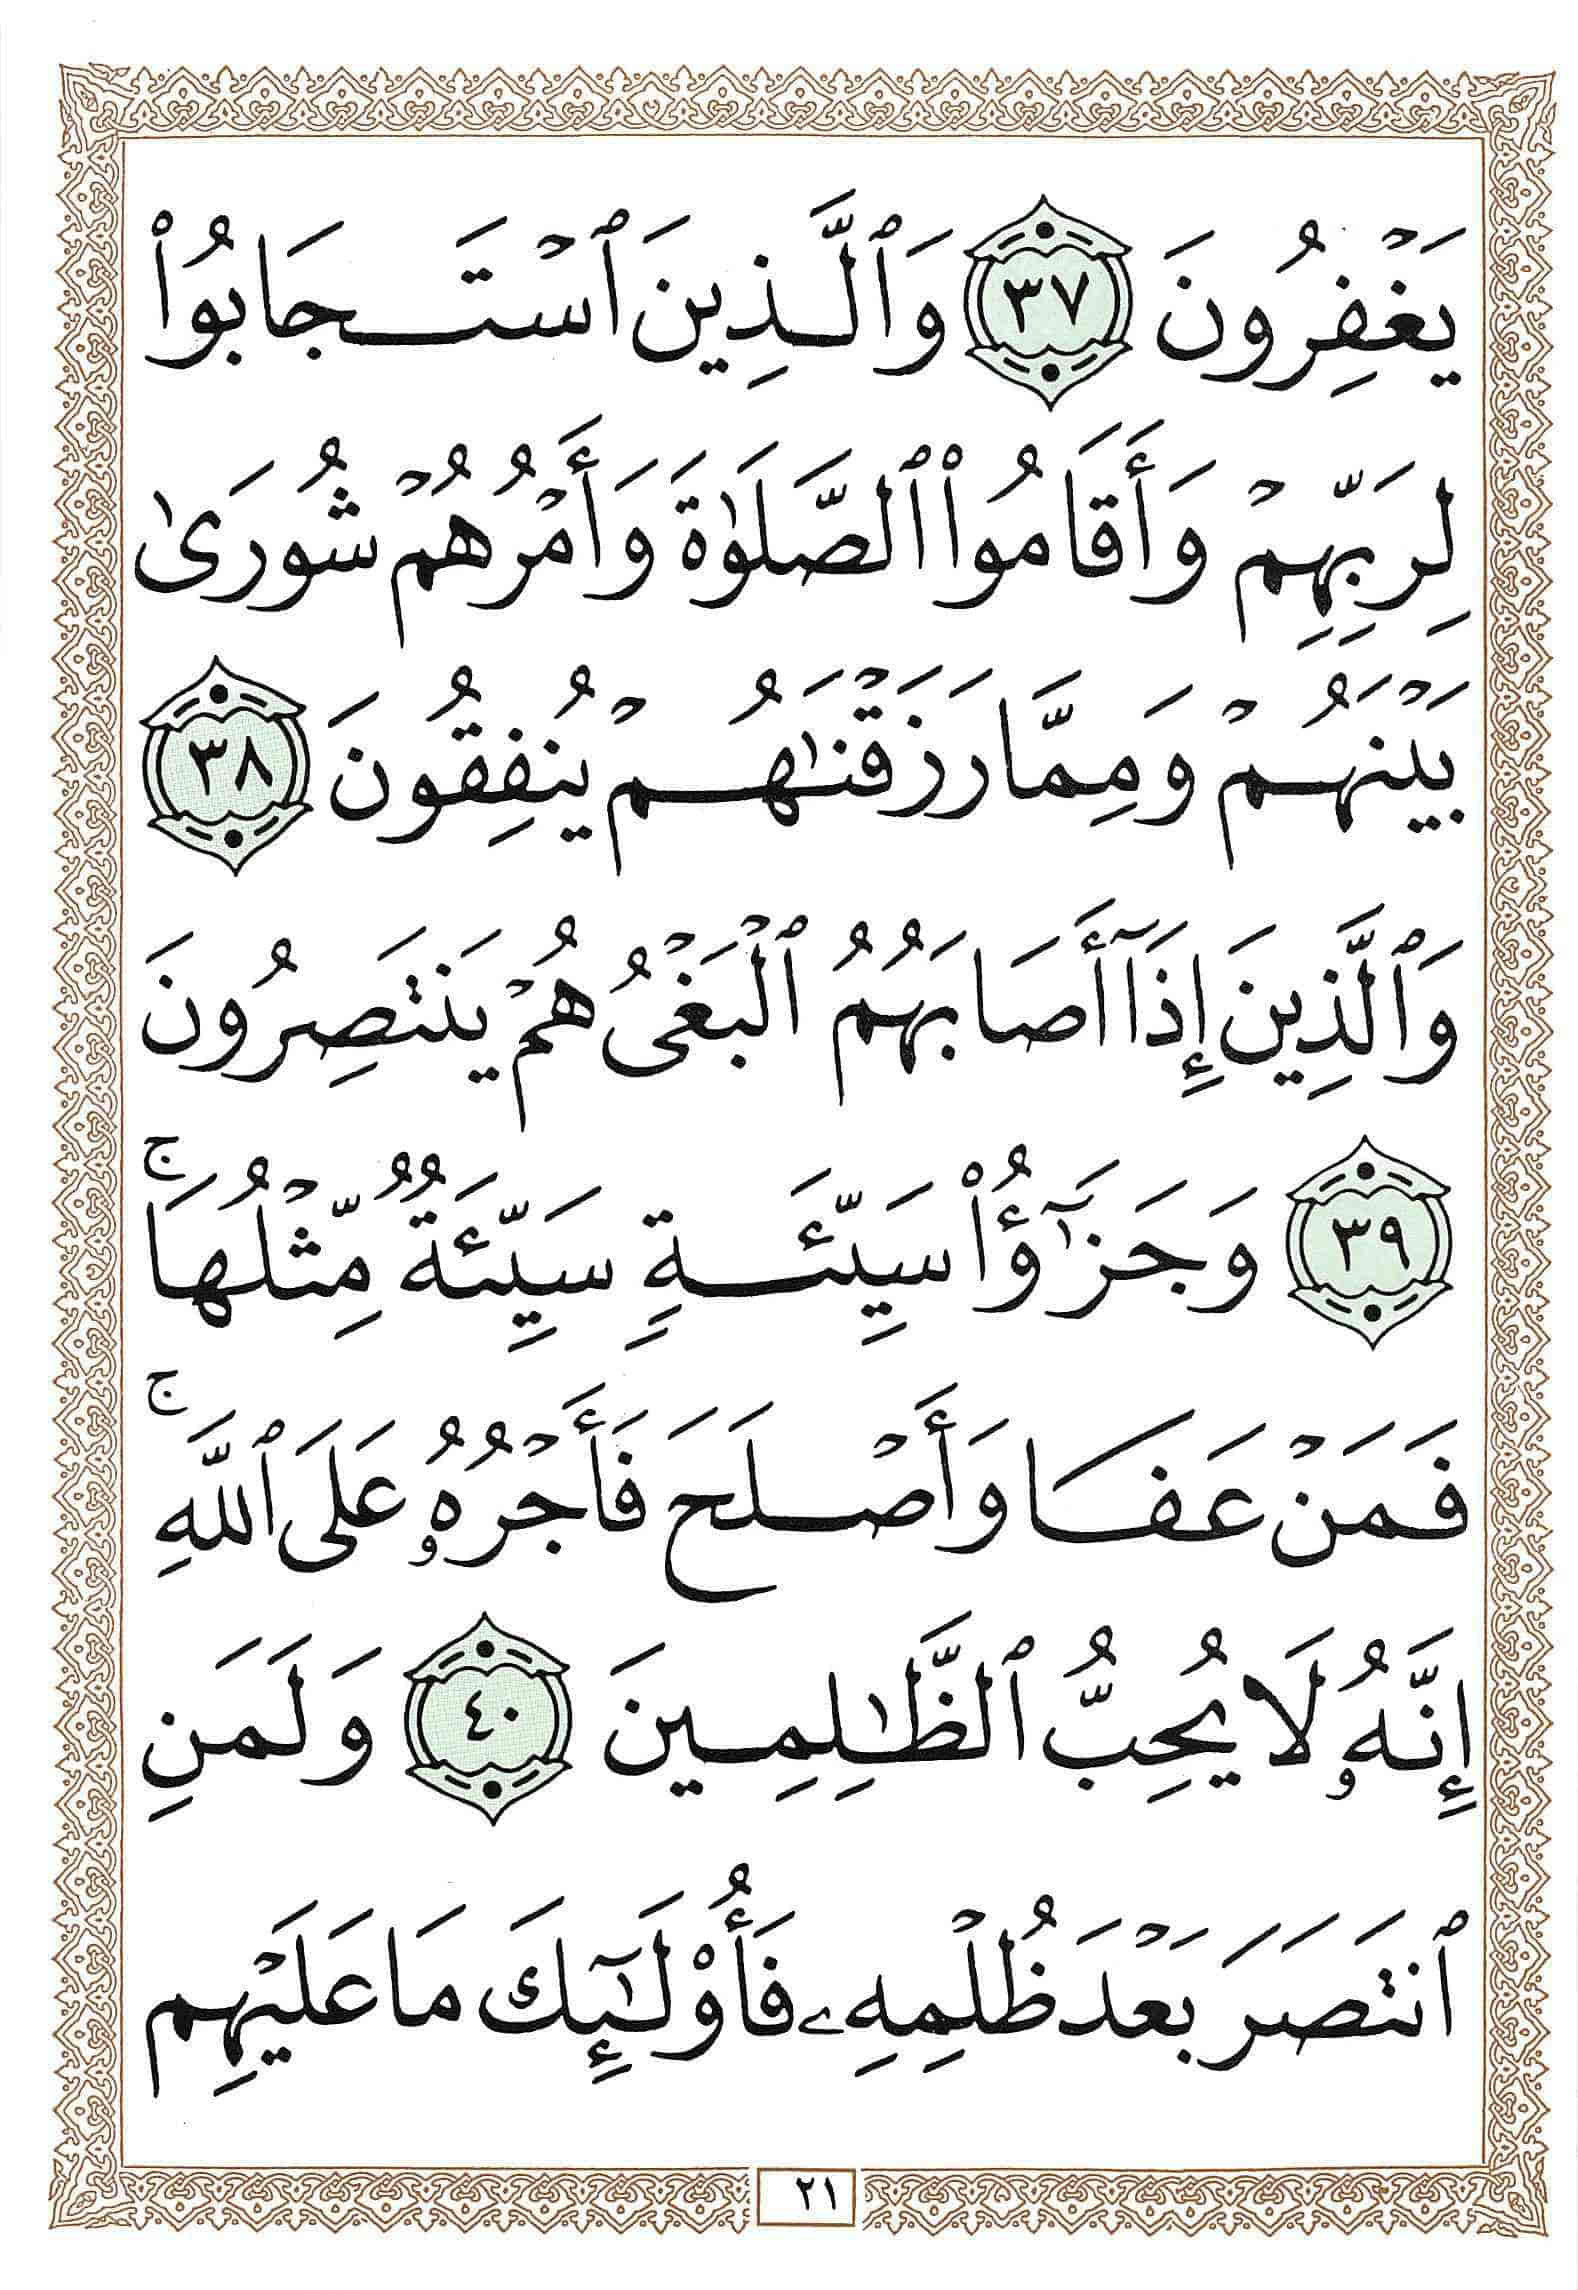 يَغْفِرُونَ ٣٧ وَٱلَّذِينَ ٱسْتَجَابُوا۟
لِرَبِّهِمْ وَأَقَامُوا۟ ٱلصَّلَوٰةَ وَأَمْرُهُمْ شُورَىٰ
بَيْنَهُمْ وَمِمَّا رَزَقْنَٰهُمْ يُنفِقُونَ ٣٨
وَٱلَّذِينَ إِذَآ أَصَابَهُمُ ٱلْبَغْىُ هُمْ يَنتَصِرُونَ
٣٩ وَجَزَٰٓؤُا۟ سَيِّئَةٍ سَيِّئَةٌ مِّثْلُهَا ۚ
فَمَنْ عَفَا وَأَصْلَحَ فَأَجْرُهُۥ عَلَى ٱللَّهِ ۚ
إِنَّهُۥ لَا يُحِبُّ ٱلظَّٰلِمِينَ ٤٠ وَلَمَنِ
ٱنتَصَرَ بَعْدَ ظُلْمِهِۦ فَأُو۟لَٰٓئِكَ مَا عَلَيْهِم
٢١